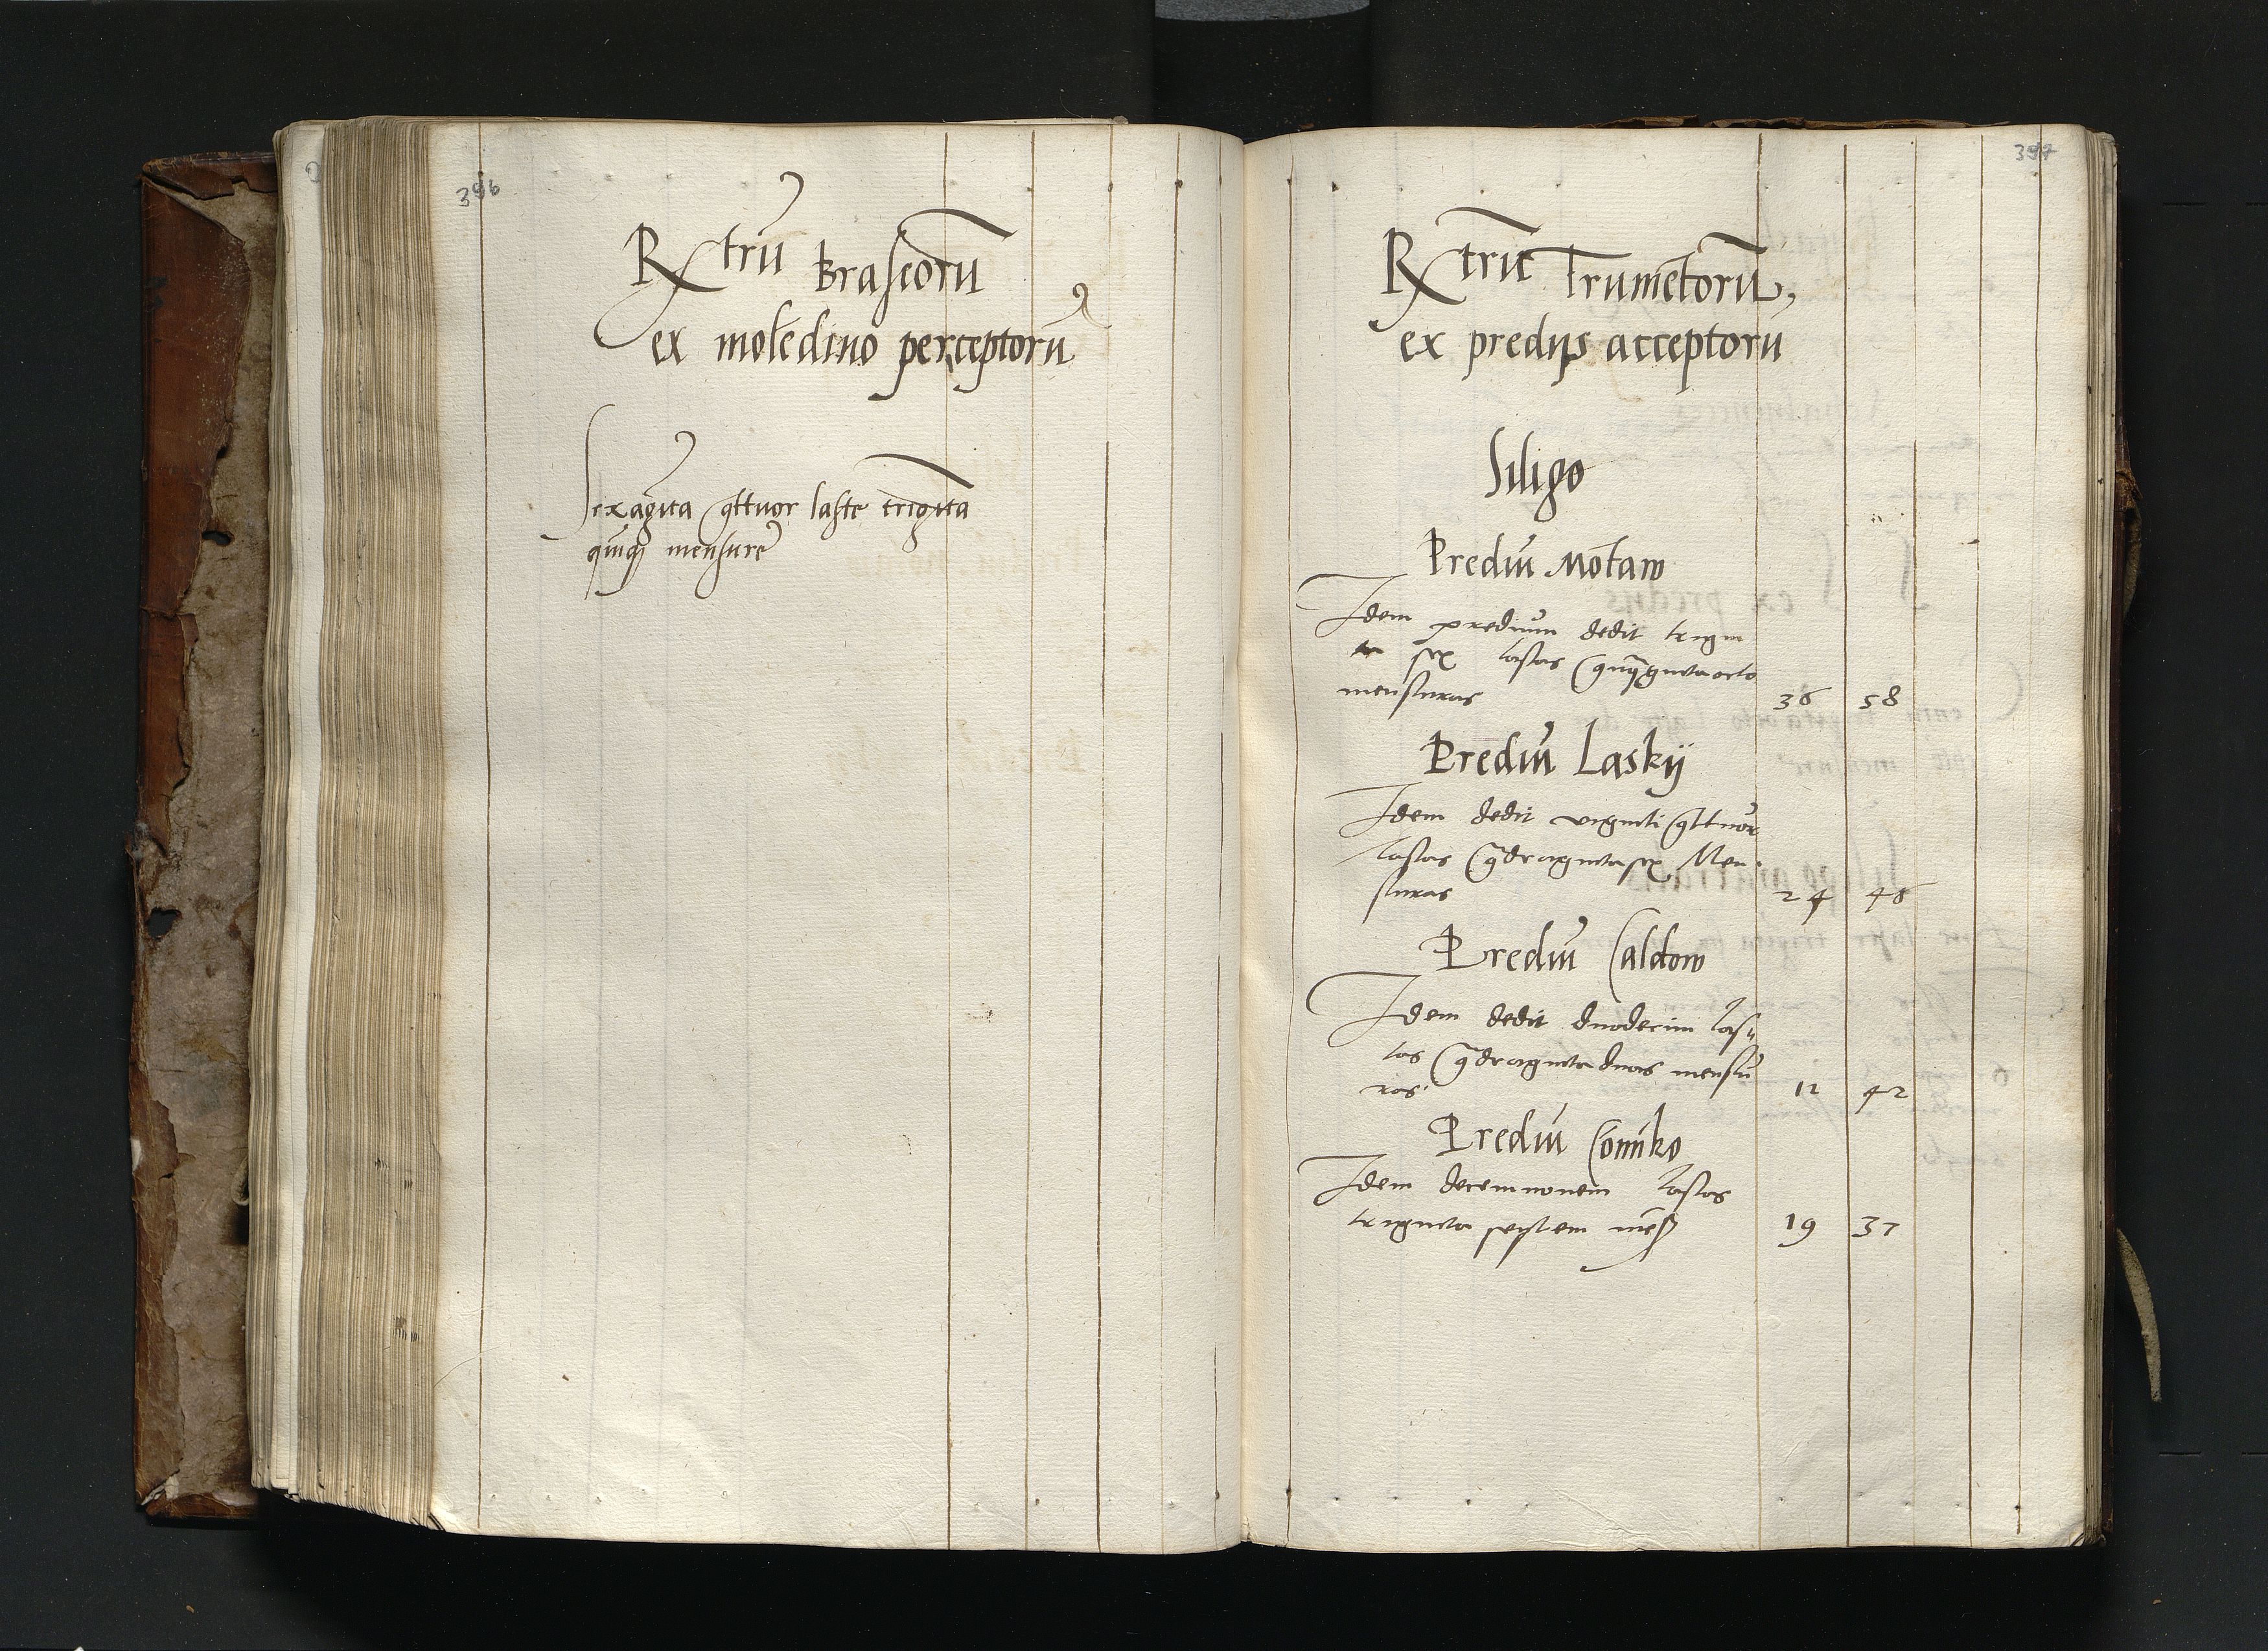 396
Rxtrū Braseorū
ex molēdino perceptorū
Sexagīta qttuor laste trigīta
quīq mensure
397
Rxtrū Frumētorū,
ex predijs acceptorū
Siligo
Prediū Mōtaw
Idem predium dedit trigin
ta sex lastas quīqginta octo
mensuras 36 58
Prediū Laskij
Idem dedit viginti qttuor
lastas qdraginta sex Men
suras 24 46
Prediū Caldow
Idem dedit duodecim las
tas qdraginta duas mensu
ras 12 42
Prediū Comko
Idem decemnouem lastas
triginta septem mēs 19 37